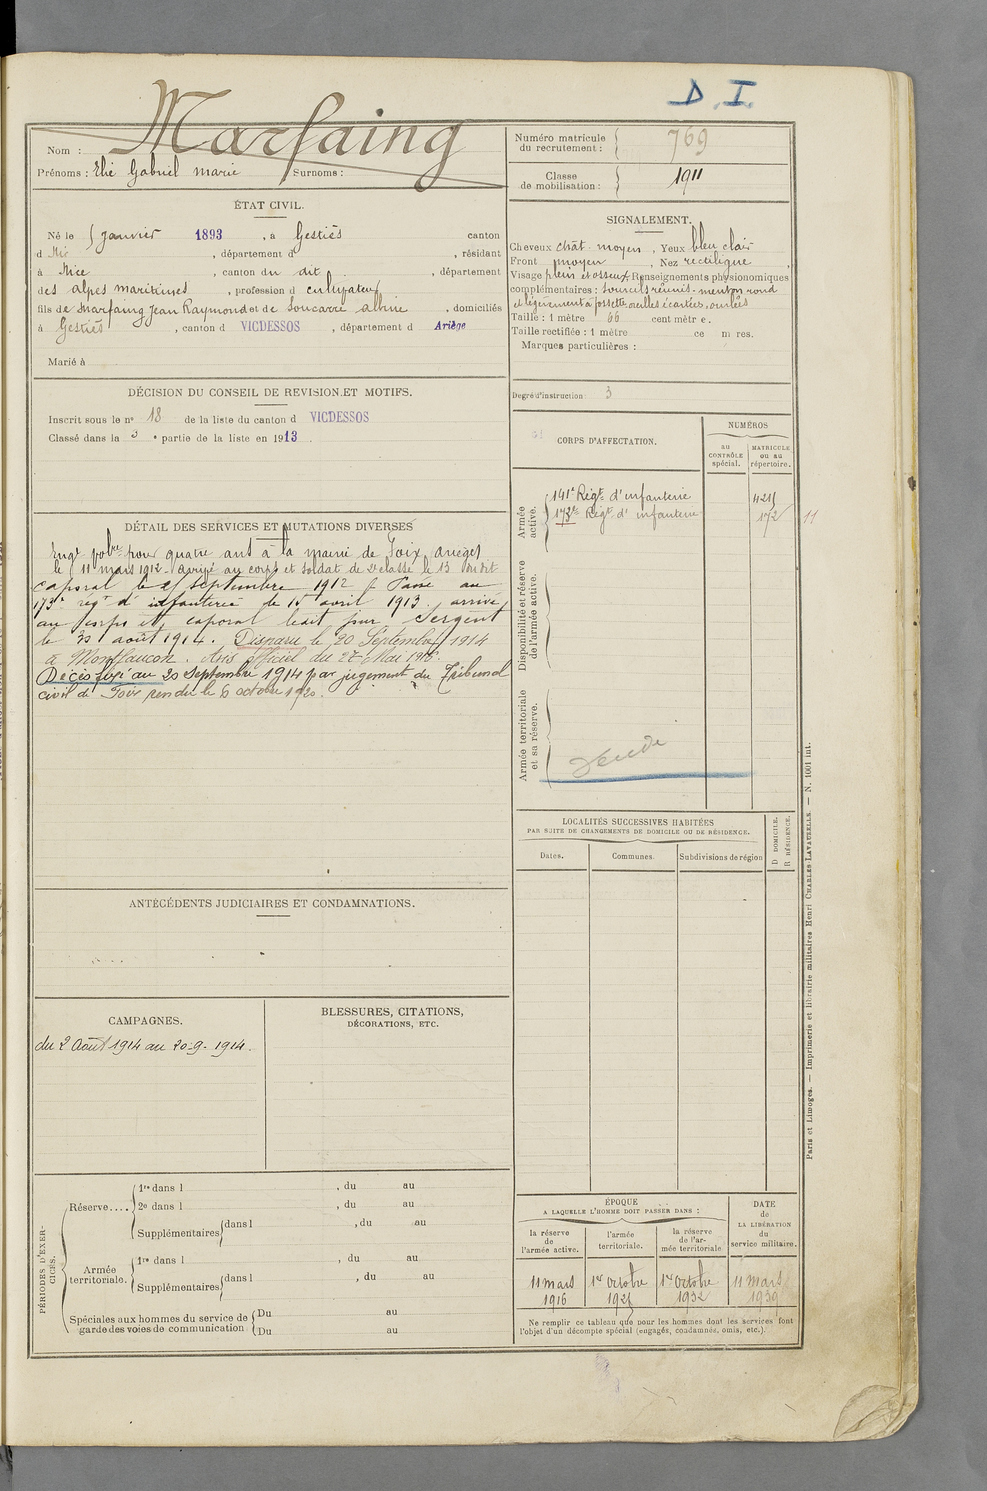 D. I.
Marfaing
Nom :
Prénoms : Elie Gabriel marie Surnoms :
Numéro matricule du recrutement : 769
Classe de mobilisation : 1911
ÉTAT CIVIL.
Né le 5 janvier 1893, à Gestiès canton
d Nic , département d , résidant
à Nice , canton du dit , département
des alpes maritimes , profession d cultivateur
fils de Marfaing Jean Raymond et de Soucarre albine , domiciliés
à Gestiès , canton d VICDESSOS , département d Ariège
Marié à
SIGNALEMENT.
Cheveux chât- moyen , Yeux bleu clair
Front moyen , Nez rectiligne ,
Visage plein et osseux, Renseignements physionomiques
complémentaires : sourcils réunis - menton rond
et légèrement à fossette, oreilles écartées, ourlées
Taille : 1 mètre 66 centimètre.
Taille rectifiée : 1 mètre ce m res.
Marques particulières :
Degré d'instruction : 3
DÉCISION DU CONSEIL DE REVISION ET MOTIFS.
Inscrit sous le nº 18 de la liste du canton d VICDESSOS
Classé dans la 3 e partie de la liste en 1913 .
CORPS D'AFFECTATION.
NUMÉROS
AU CONTRÔLE spécial.
MATRICULE OU AU répertoire.
Armée active.
141e Régt d'infanterie
173e Régt d'infanterie 172 11
Disponibilité et réserve de l'armée active.
Armée territoriale et sa réserve.
DÉTAIL DES SERVICES ET MUTATIONS DIVERSES
Engt volre pour quatre ans à la mairie de Foix, ariège
le 11 mars 1912. arrivé au corps et soldat de 2e classe le 13 dudit
caporal le 25 septembre 1912. Passé au
173e régt d'infanterie le 15 avril 1913, arrivé
au corps et caporal ledit jour Sergent
le 30 août 1914. Disparu le 20 Septembre 1914
à Montfaucon. Avis officiel du 27 Mai 1916.
Décès fixé au 20 septembre 1914 par jugement du Tribunal
civil de Foix rendu le 6 octobre 1920.
LOCALITÉS SUCCESSIVES HABITÉES
PAR SUITE DE CHANGEMENTS DE DOMICILE OU DE RÉSIDENCE.
Dates. Communes. Subdivisions de région
D DOMICILE.
R RÉSIDENCE.
ANTÉCÉDENTS JUDICIAIRES ET CONDAMNATIONS.
CAMPAGNES.
du 2 Août 1914 au 20-9-1914.
BLESSURES, CITATIONS,
DÉCORATIONS, ETC.
PÉRIODES D'EXERCICES.
Réserve.... 1re dans l , du au
2e dans l , du au
Supplémentaires dans l , du au
Armée territoriale. 1re dans l , du au
Supplémentaires dans l , du au
Spéciales aux hommes du service de garde des voies de communication : Du au
Du au
ÉPOQUE
A LAQUELLE L'HOMME DOIT PASSER DANS :
la réserve de l'armée active.
l'armée territoriale.
la réserve de l'armée territoriale
DATE de LA LIBÉRATION du service militaire.
11 mars 1916
1er Octobre
1er Octobre 1932
11 Mars 1939
Ne remplir ce tableau que pour les hommes dont les services font
l'objet d'un décompte spécial (engagés, condamnés, omis, etc.).
Paris et Limoges. — Imprimerie et librairie militaires Henri CHARLES-LAVAUZELLE. — N. 1001 int.